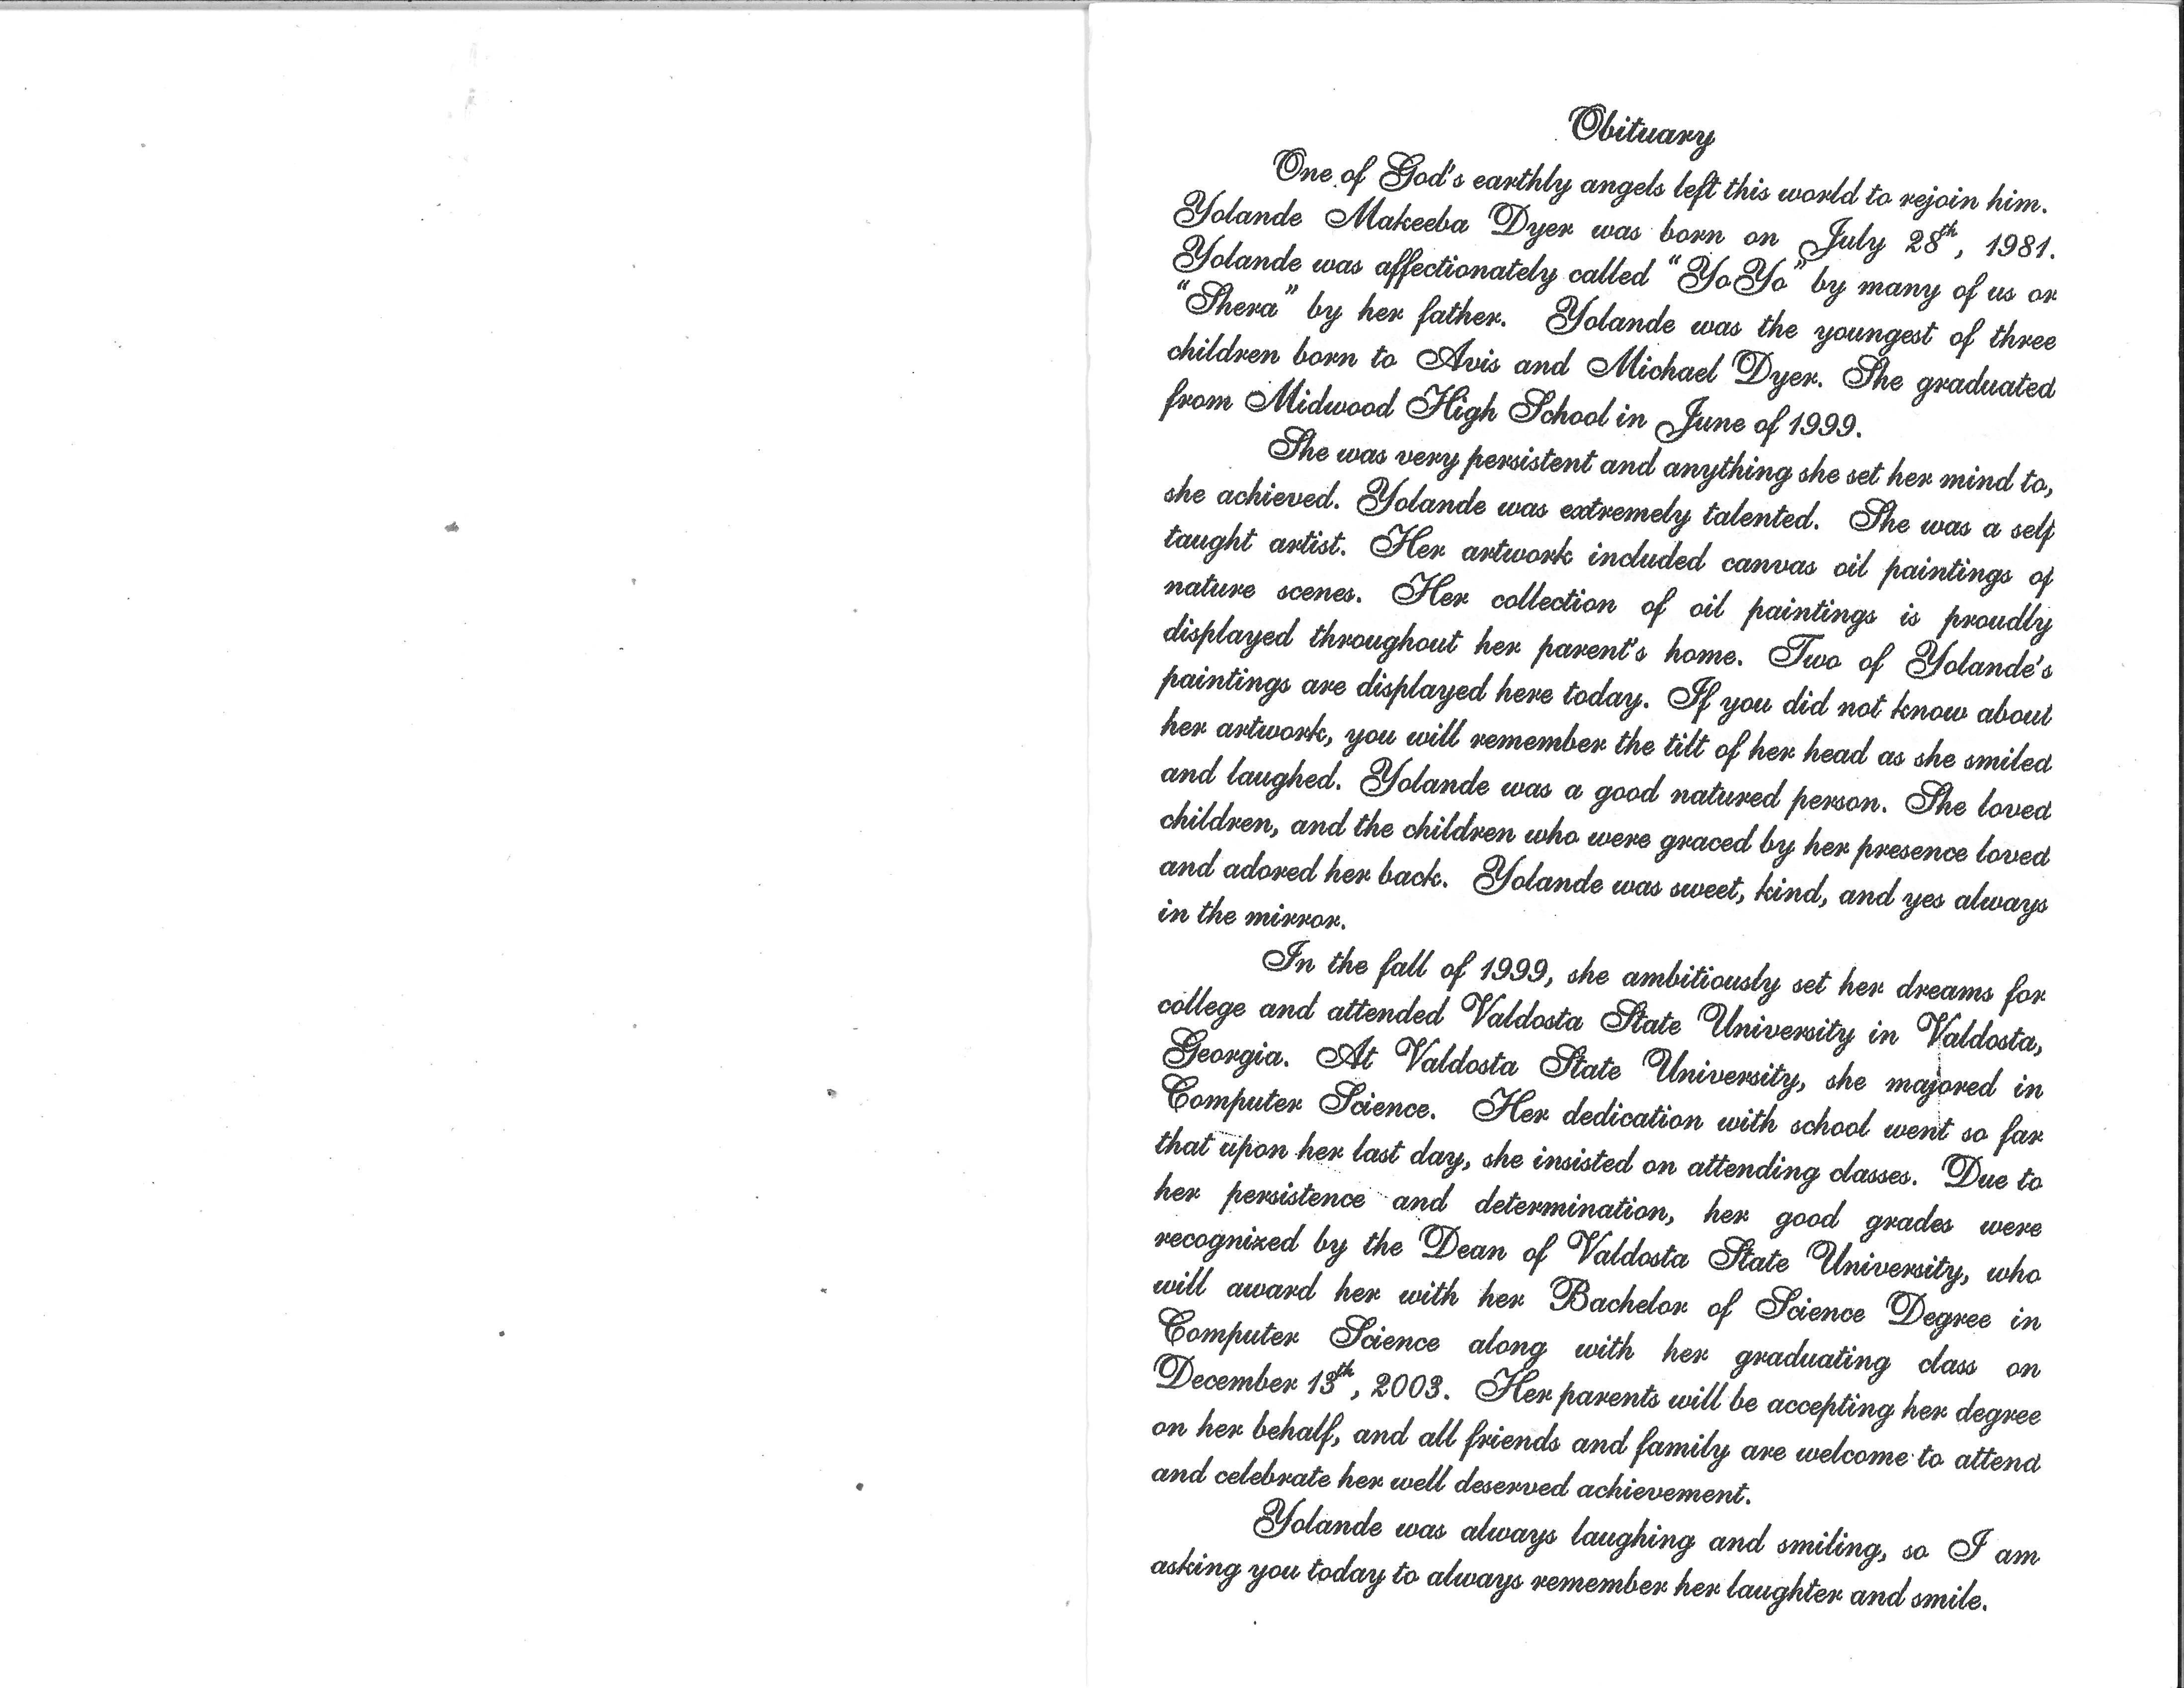 Obituary
One of God's earthly angels left this world to rejoin him.
Yolande Makeeba Dyer was born on July 28th, 1981.
Yolande was affectionately called "YoYo" by many of us or
"Shera" by her father. Yolande was the youngest of three
children born to Avis and Michael Dyer. She graduated
from Midwood High School in June of 1999.
She was very persistent and anything she set her mind to,
she achieved. Yolande was extremely talented. She was a self
taught artist. Her artwork included canvas oil paintings of
nature scenes. Her collection of oil paintings is proudly
displayed throughout her parent's home. Two of Yolande's
paintings are displayed here today. If you did not know about
her artwork, you will remember the tilt of her head as she smiled
and laughed. Yolande was a good natured person. She loved
children, and the children who were graced by her presence loved
and adored her back. Yolande was sweet, kind, and yes always
in the mirror.
In the fall of 1999, she ambitiously set her dreams for
college and attended Valdosta State University in Valdosta,
Georgia. At Valdosta State University, she majored in
Computer Science. Her dedication with school went so far
that upon her last day, she insisted on attending classes. Due to
her persistence and determination, her good grades were
recognized by the Dean of Valdosta State University, who
will award her with her Bachelor of Science Degree in
Computer Science along with her graduating class on
December 13th, 2003. Her parents will be accepting her degree
on her behalf, and all friends and family are welcome to attend
and celebrate her well deserved achievement.
Yolande was always laughing and smiling, so I am
asking you today to always remember her laughter and smile.